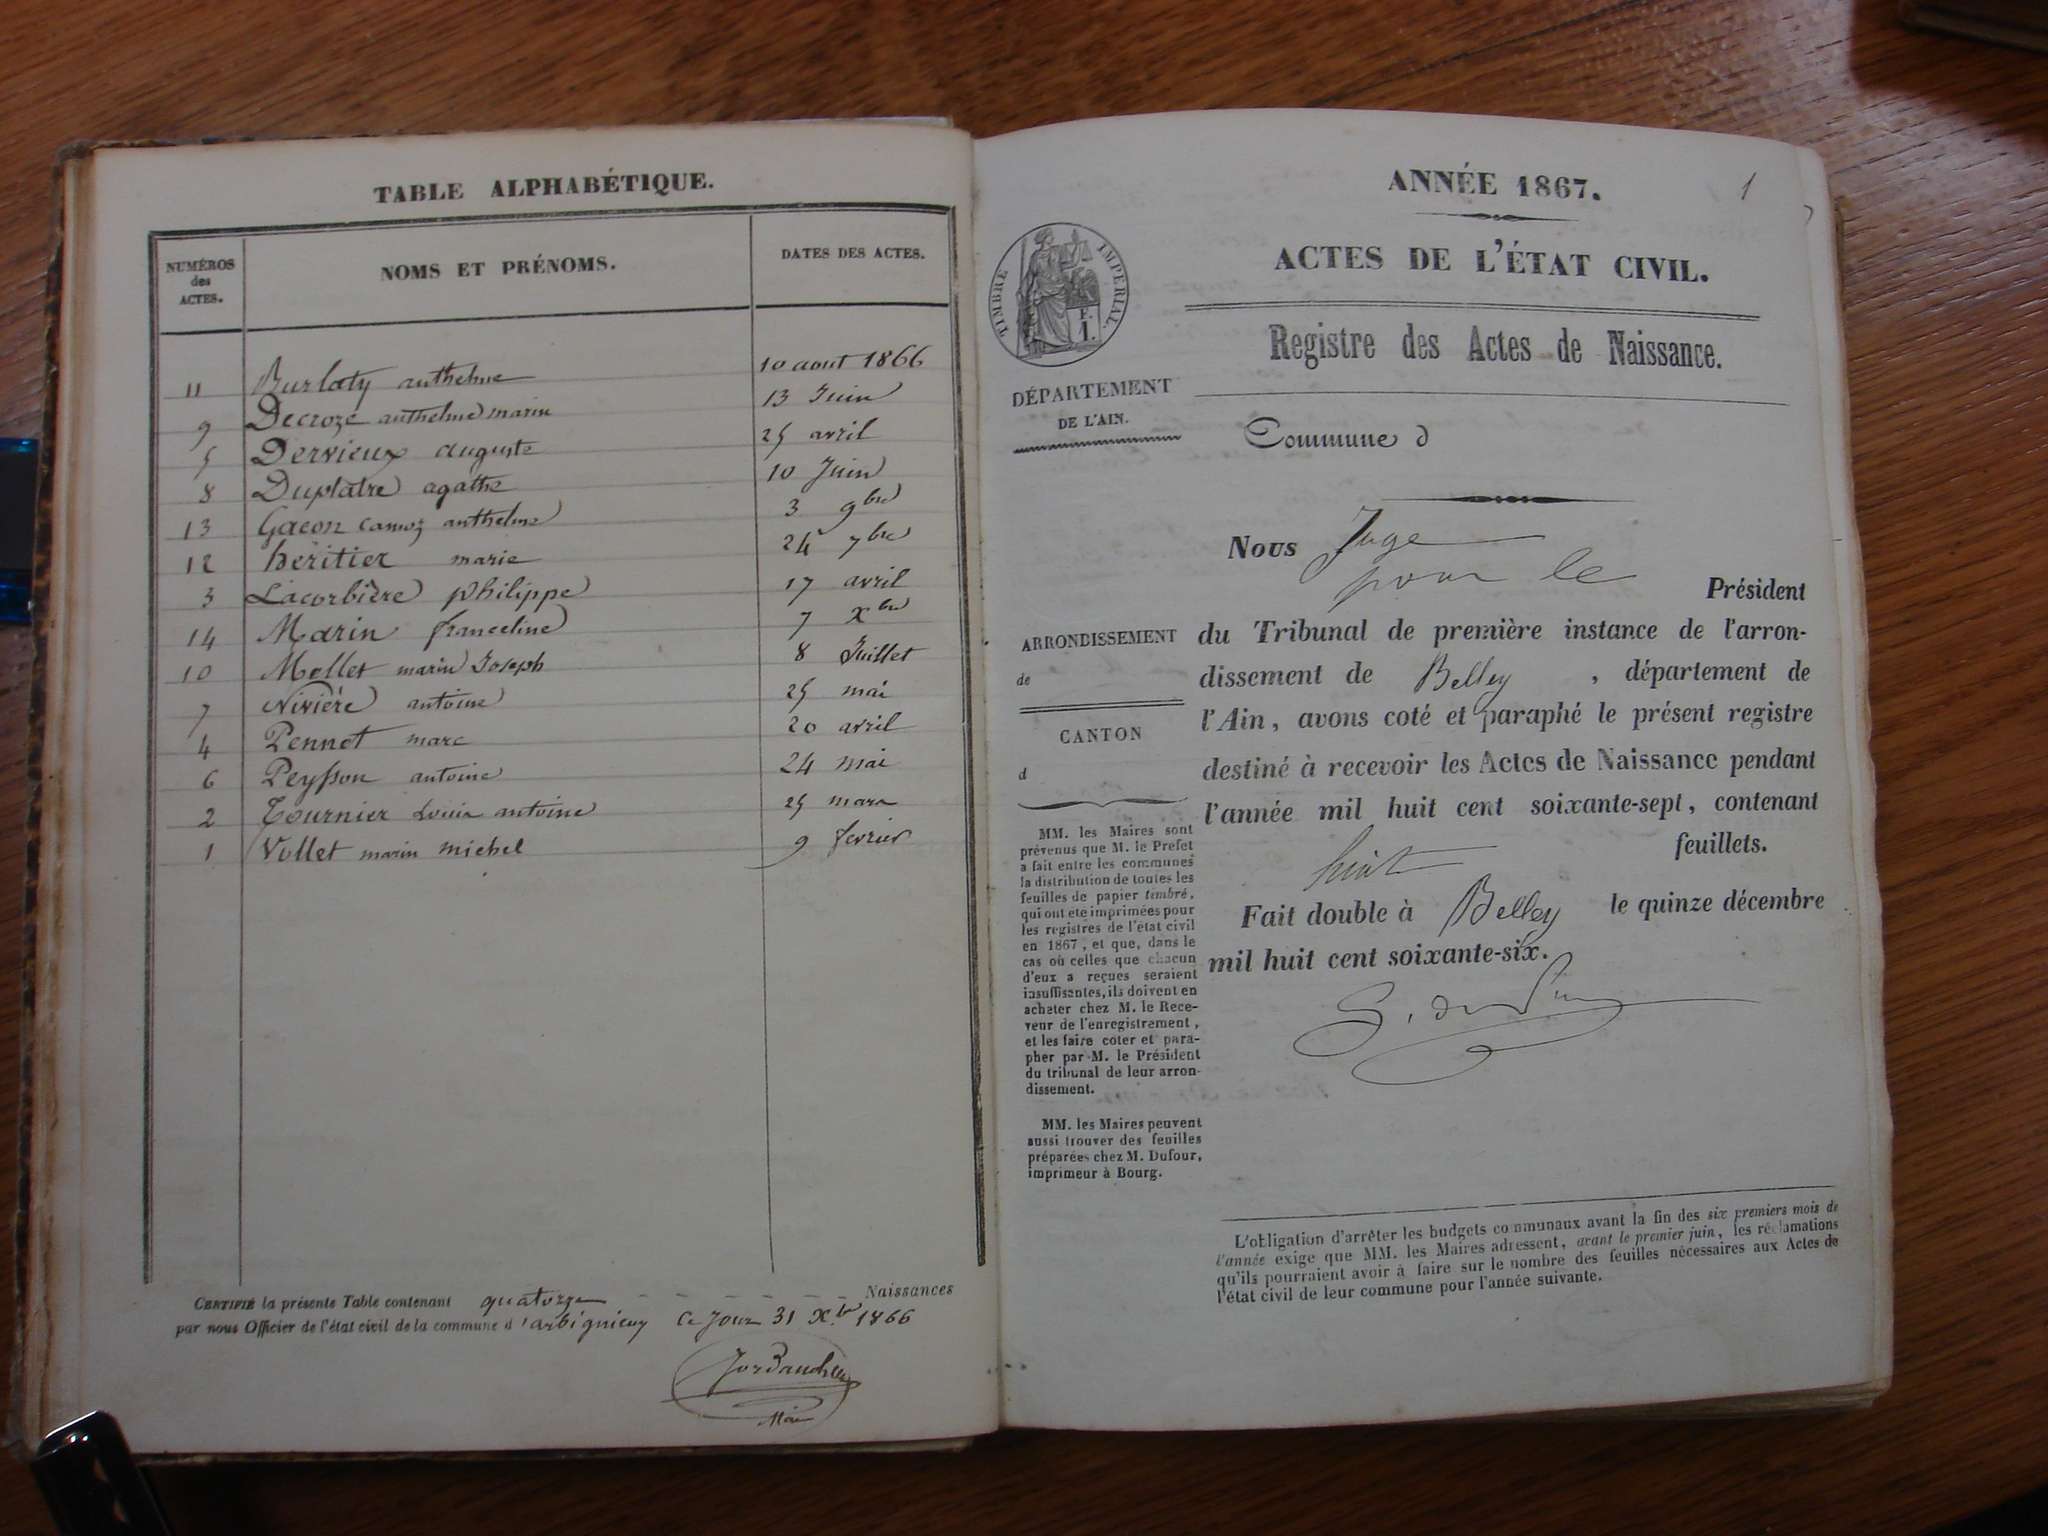 TABLE ALPHABÉTIQUE.
NUMÉROS
des
ACTES.
NOMS ET PRÉNOMS.
DATES DES ACTES.
11 Burlaty anthelme 10 aout 1866
9 Decroze anthelme marin 13 Juin
5 Dervieux auguste 25 avril
8 Duplatre agathe 10 Juin
13 Gacon camoz anthelme 3 9bre
12 héritier marie 24 7bre
3 Lacorbière philippe 17 avril
14 Marin franceline 7 xbre
10 Mollet marin Joseph 8 Juillet
7 Nivière antoine 25 mai
4 Pennet marc 20 avril
6 Peysson antoine 24 mai
2 Tournier Louis antoine 25 mars
1 Vollet marin michel 9 fevrier
CERTIFIÉ la présente Table contenant quatorze Naissances
par nous Officier de l'état civil de la commune d'arbignieu Ce Jour 31 Xbre 1866
Maire
ANNÉE 1867.
1
ACTES DE L'ÉTAT CIVIL.
TIMBRE IMPÉRIAL.
F.
1.
Registre des Actes de Naissance.
DÉPARTEMENT
DE L'AIN.
Commune d
Nous Juge
pour le
Président
du Tribunal de première instance de l'arron-
dissement de Belley, département de
l'Ain, avons coté et paraphé le présent registre
destiné à recevoir les Actes de Naissance pendant
l'année mil huit cent soixante-sept, contenant
huit feuillets.
Fait double à Belley le quinze décembre
mil huit cent soixante-six.
ARRONDISSEMENT
de
CANTON
d
MM. les Maires sont
prévenus que M. le Préfet
a fait entre les communes
la distribution de toutes les
feuilles de papier timbré,
qui ont été imprimées pour
les registres de l'état civil
en 1867, et que, dans le
cas où celles que chacun
d'eux a reçues seraient
insuffisantes, ils doivent en
acheter chez M. le Rece-
veur de l'enregistrement,
et les faire coter et para-
pher par M. le Président
du tribunal de leur arron-
dissement.
MM. les Maires peuvent
aussi trouver des feuilles
préparées chez M. Dufour,
imprimeur à Bourg.
L'obligation d'arrêter les budgets communaux avant la fin des six premiers mois de
l'année exige que MM. les Maires adressent, avant le premier juin, les réclamations
qu'ils pourraient avoir à faire sur le nombre des feuilles nécessaires aux Actes de
l'état civil de leur commune pour l'année suivante.